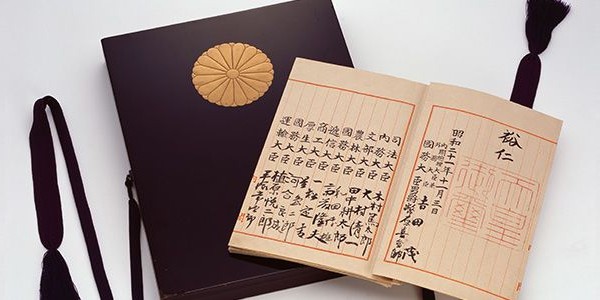 裕仁
天皇御璽
昭和二十一年十一月三日
内閣総理大臣兼
外務大臣 吉田茂
国務大臣 男爵 幣原喜重郎
司法大臣 木村篤太郎
内務大臣 大村清一
文部大臣 田中耕太郎
農林大臣 和田博雄
国務大臣 斎藤隆夫
逓信大臣 一松定吉
商工大臣 星島二郎
厚生大臣 河合良成
国務大臣 植原悦二郎
運輸大臣 平塚常次郎